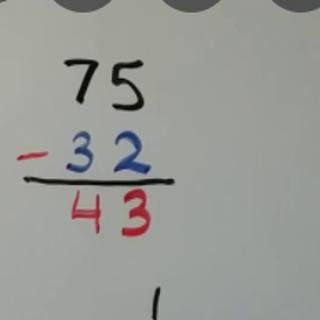 75
- 32
43